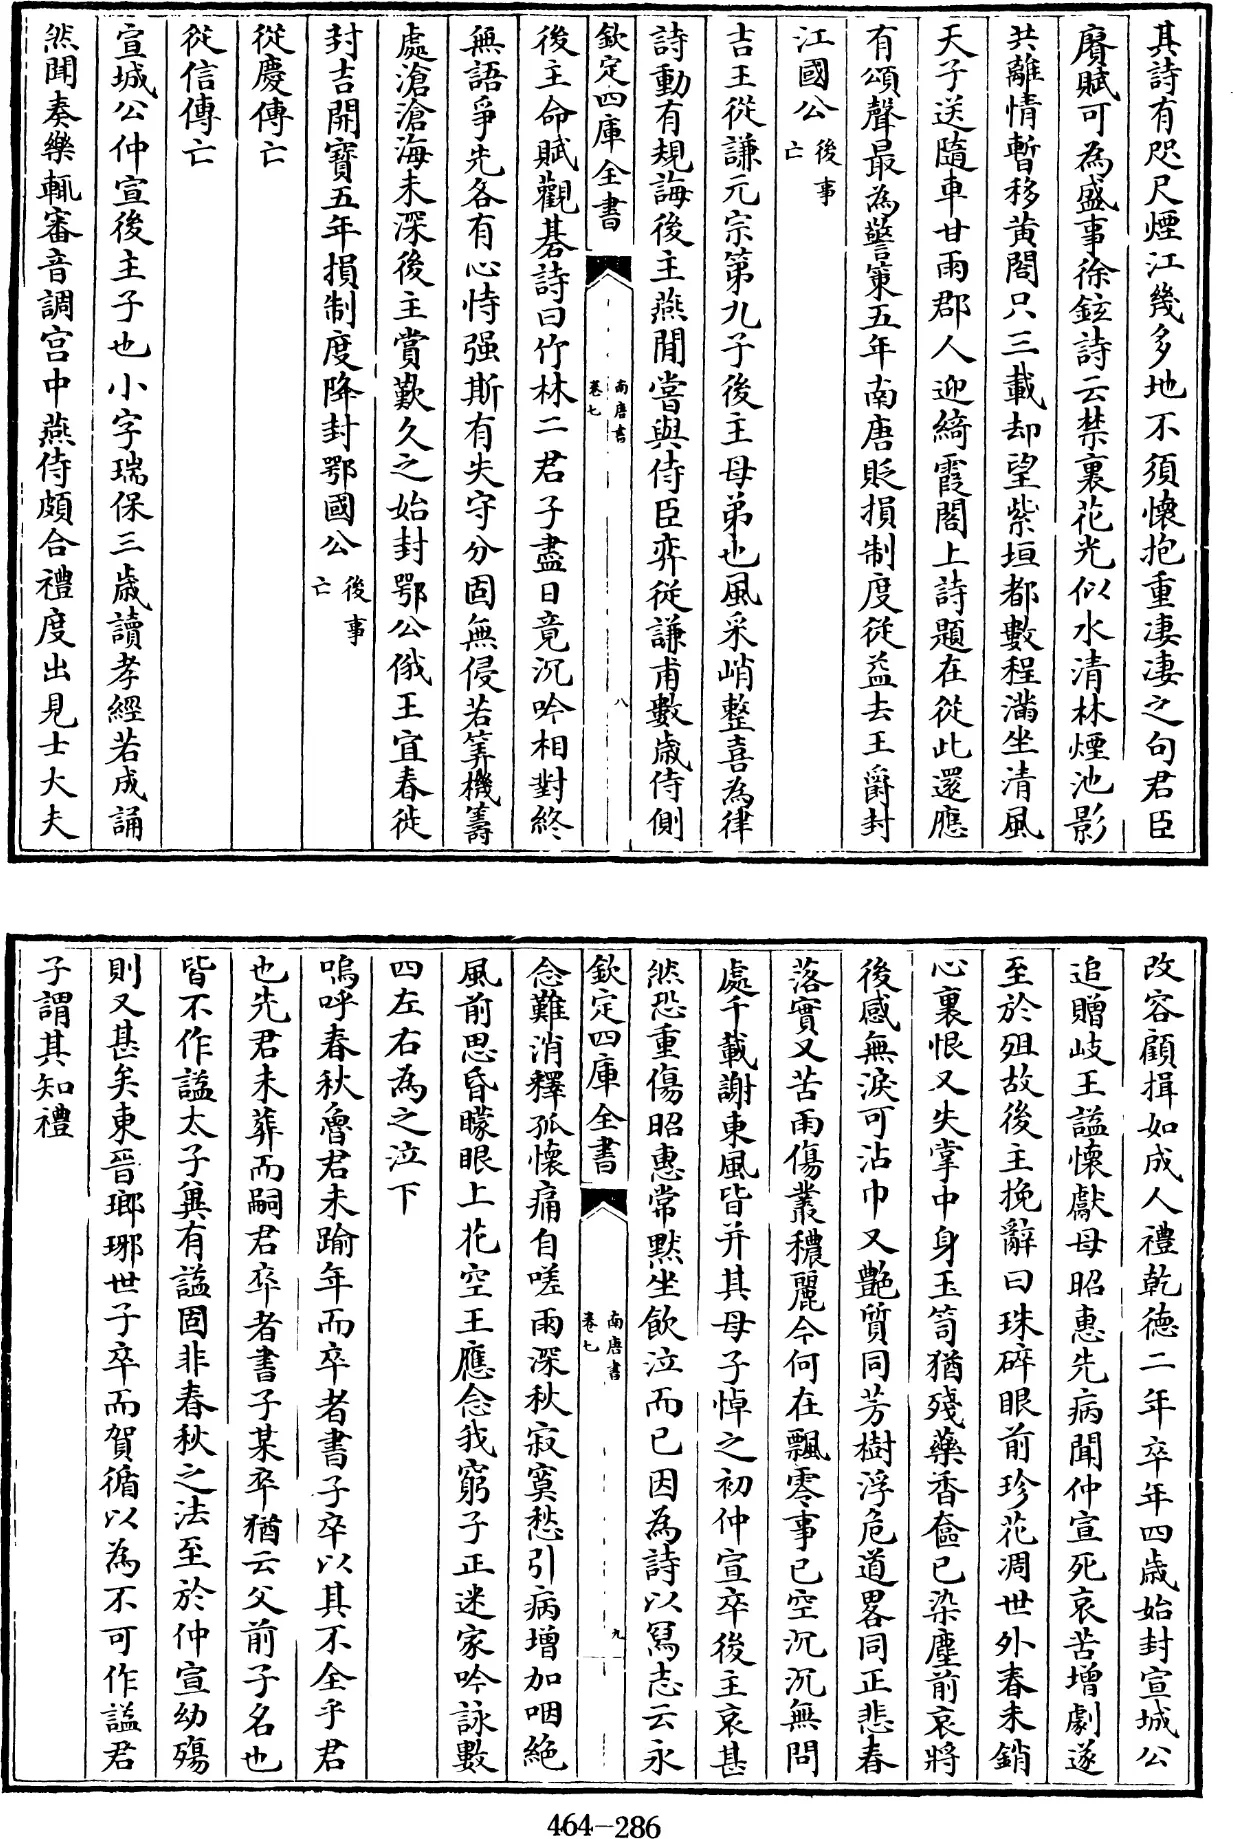 其詩有咫尺煙江幾多地不須懷抱重淒淒之句君臣
賡賦可為盛事徐鉉詩云禁裏花光似水清林煙池影
共離情暫移黃閤只三載却望紫垣都數程滿坐清風
天子送隨車甘雨郡人迎綺霞閣上詩題在從此還應
有頌聲最為警策五年南唐貶損制度從益去王爵封
江國公後事亡
吉王從謙元宗第九子後主母弟也風采峭整喜為律
詩動有規誨後主燕閒嘗與侍臣弈從謙甫數歲侍側
欽定四庫全書
南唐書
卷七
八
後主命賦觀棊詩曰竹林二君子盡日竟沉吟相對終
無語爭先各有心恃强斯有失守分固無侵若筭機籌
處滄滄海未深後主賞歎久之始封鄂公俄王宜春徙
封吉開寶五年損制度降封鄂國公後事亡
從慶傳亡
從信傳亡
宣城公仲宣後主子也小字瑞保三歲讀孝經若成誦
然聞奏樂輒審音調宮中燕侍頗合禮度出見士大夫
改容顧揖如成人禮乾德二年卒年四歲始封宣城公
追贈岐王諡懷獻母昭惠先病聞仲宣死哀苦增劇遂
至於殂故後主挽辭曰珠碎眼前珍花凋世外春未銷
心裏恨又失掌中身玉笥猶殘藥香奩已染塵前哀將
後感無淚可沾巾又艶質同芳樹浮危道畧同正悲春
落實又苦雨傷叢穠麗今何在飄零事已空沉沉無問
處千載謝東風皆并其母子悼之初仲宣卒後主哀甚
然恐重傷昭惠常默坐飲泣而已因為詩以寫志云永
欽定四庫全書
南唐書
卷七
九
念難消釋孤懷痛自嗟雨深秋寂寞愁引病增加咽絕
風前思昏矇眼上花空王應念我窮子正迷家吟詠數
四左右為之泣下
嗚呼春秋魯君未踰年而卒者書子卒以其不全乎君
也先君未葬而嗣君卒者書子某卒猶云父前子名也
皆不作諡太子兾有諡固非春秋之法至於仲宣幼殤
則又甚矣東晉瑯琊世子卒而賀循以為不可作諡君
子謂其知禮
464-286